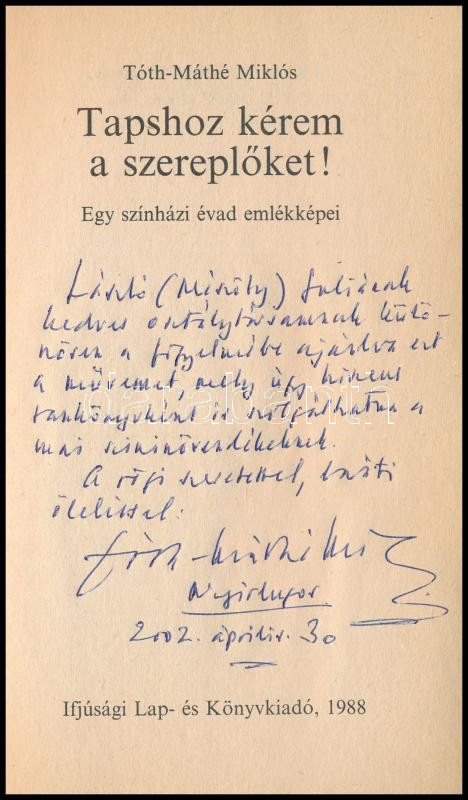 Tóth-Máthé Miklós
Tapshoz kérem
a szereplőket!
Egy színházi évad emlékképei
László (Mészöly) Juliának
kedves osztálytársamnak külö-
nösen a figyelmébe ajánlva ezt
a művemet, mely úgy hiszem
tankönyvként is szolgálhatna a
mai színinövendékeknek.
A régi szeretettel, baráti
öleléssel:
Tóth-Máthé Miklós
2002. április. 30
Ifjúsági Lap- és Könyvkiadó, 1988